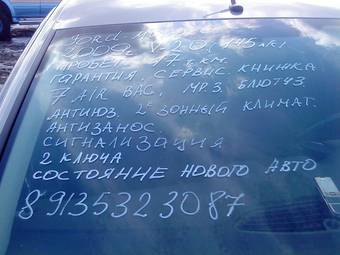 FORD
2009г. V-2.0 (145 л.с)
ПРОБЕГ 47 т.км.
ГАРАНТИЯ. СЕРВИС. КНИЖКА
7 AIR BAG, MP.3. БЛЮТУЗ.
АНТИЮЗ. 2х ЗОННЫЙ КЛИМАТ.
АНТИЗАНОС.
СИГНАЛИЗАЦИЯ
2 КЛЮЧА
СОСТОЯНИЕ НОВОГО АВТО
89135323087